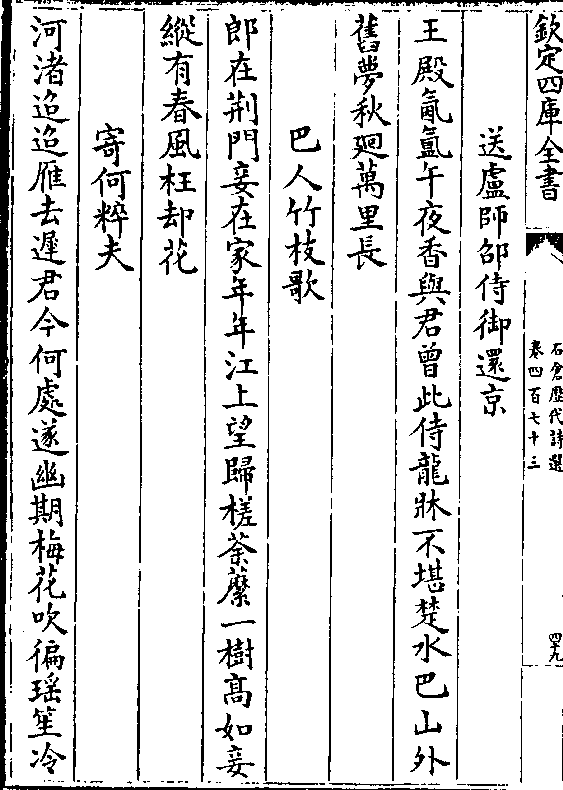 欽定四庫全書
石倉歴代詩選
卷四百七十三
四十九
送盧師邵侍御還京
王殿氤氲午夜香與君曾此侍龍牀不堪楚水巴山外
舊夢秋廻萬里長
巴人竹枝歌
郎在荆門妾在家年年江上望歸槎荼蘼一樹髙如妾
縱有春風枉却花
寄何粹夫
河渚迢迢雁去遲君今何處遂幽期梅花吹徧瑶笙冷